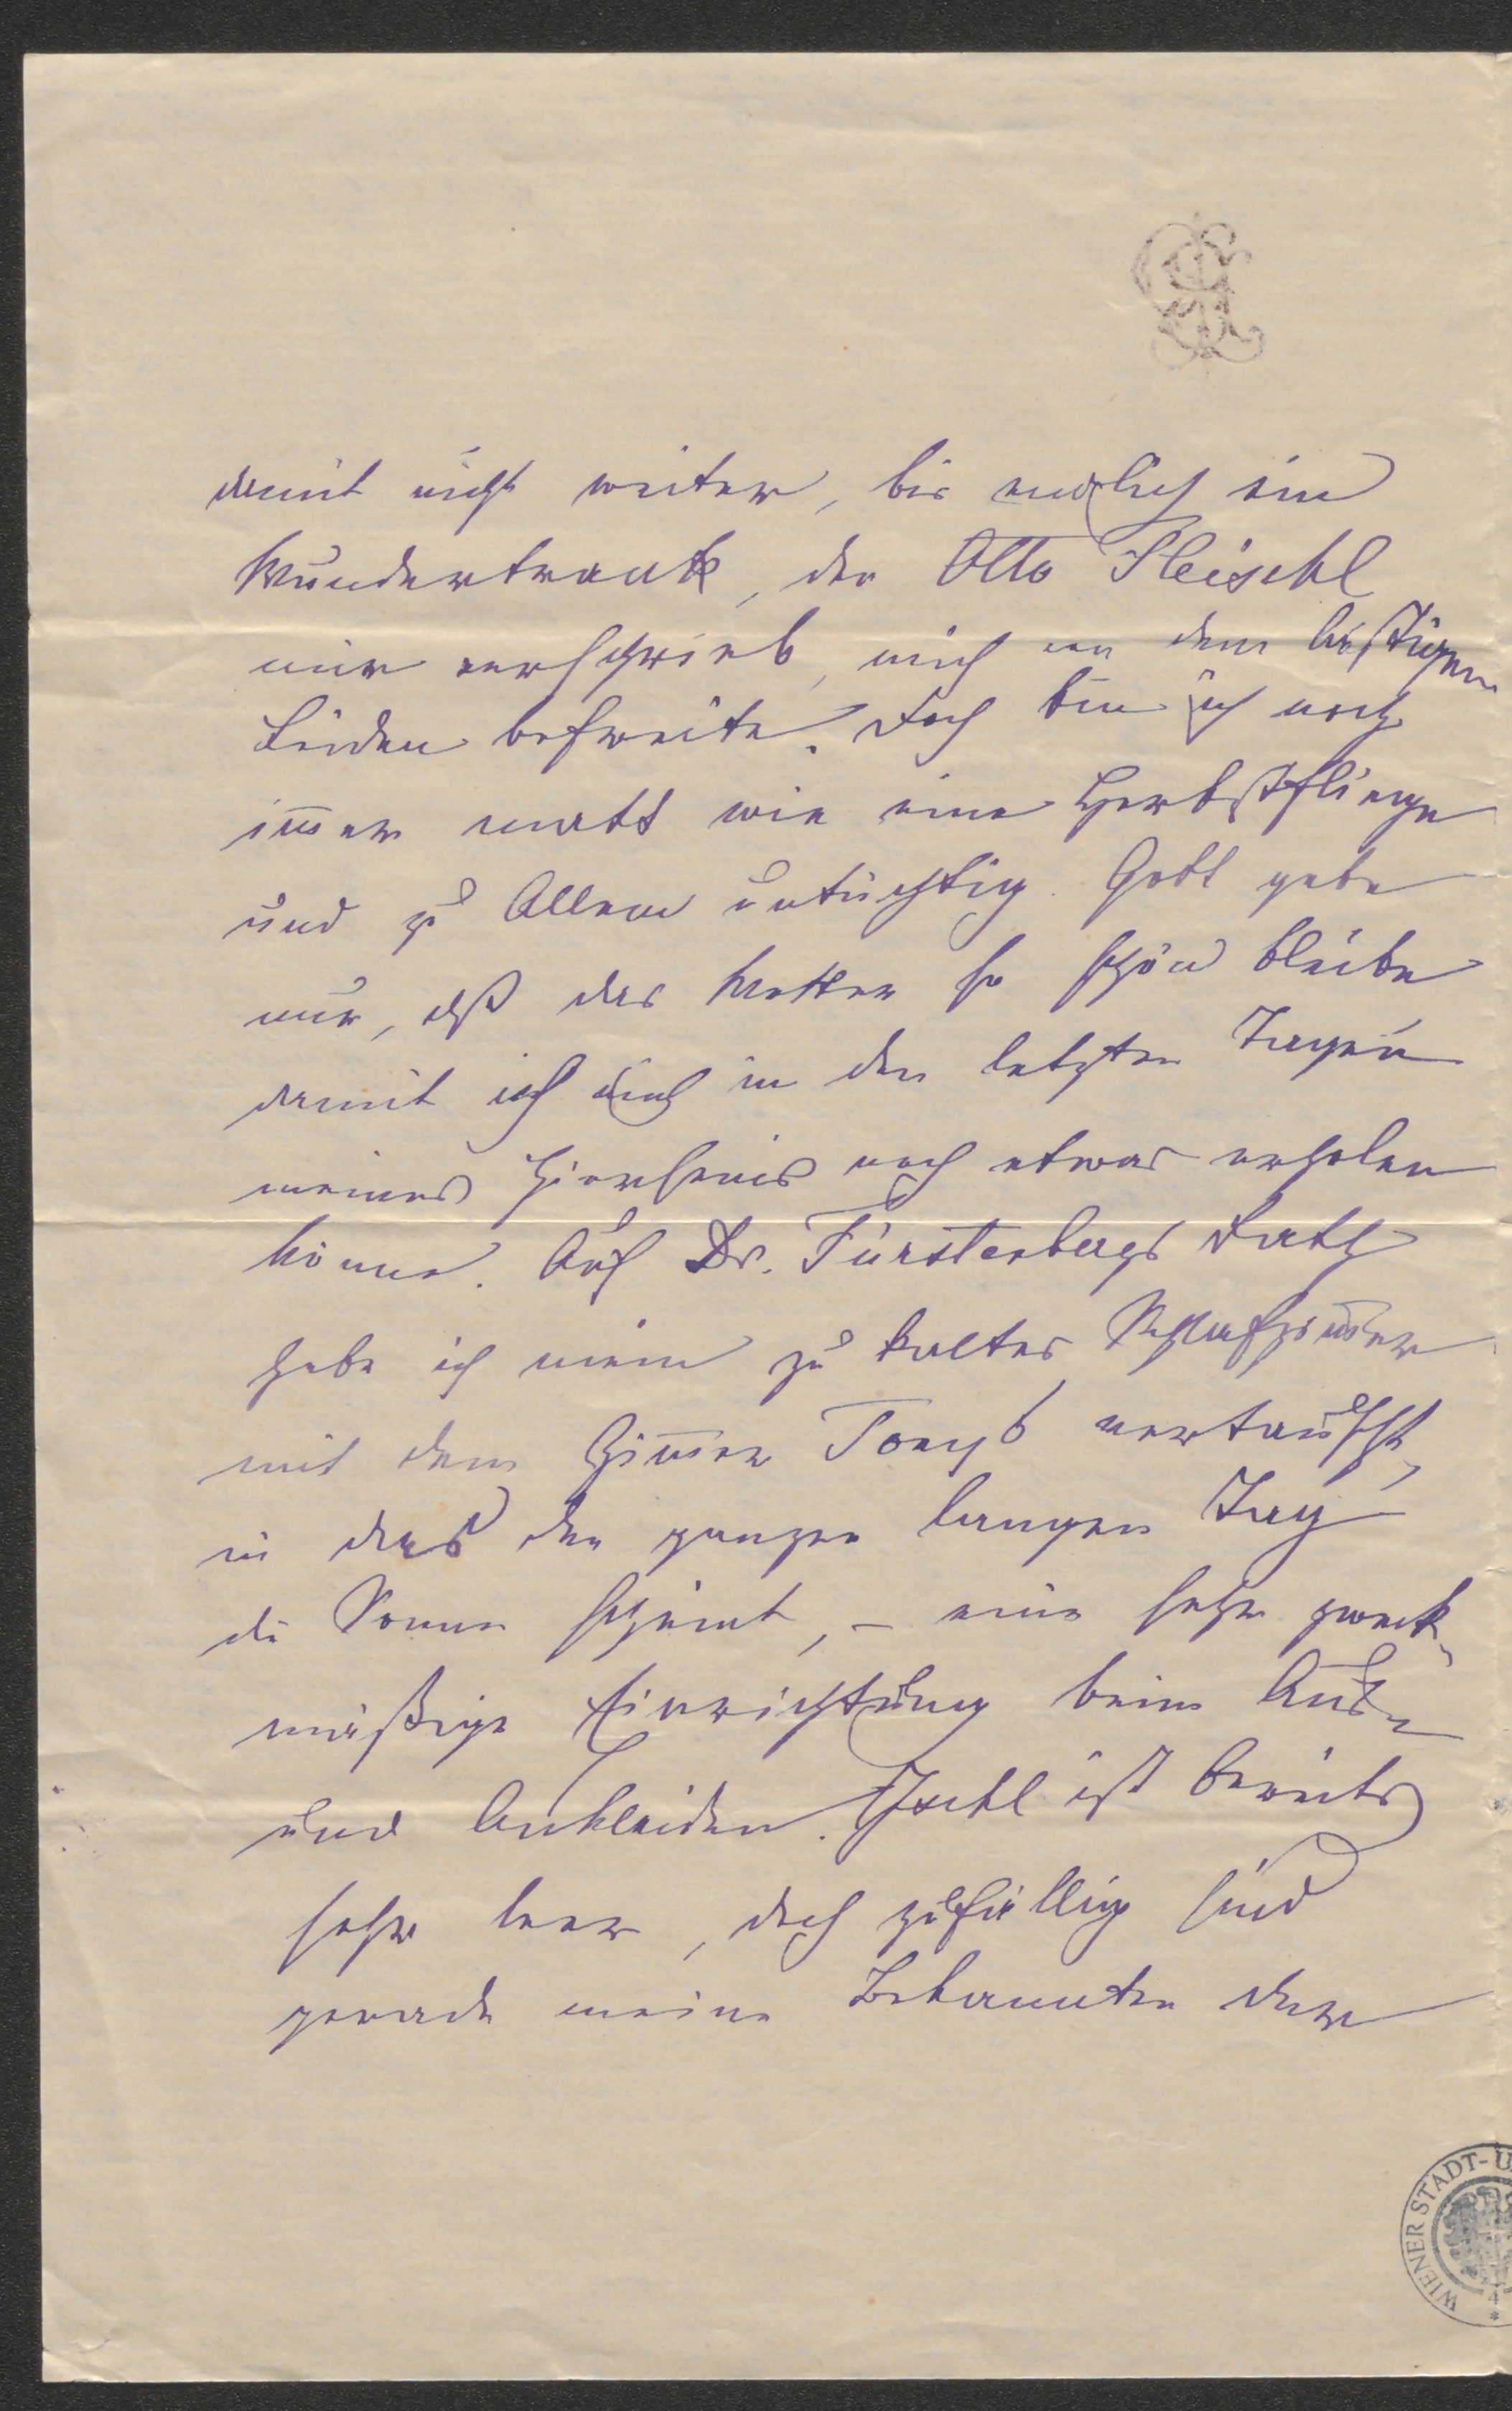 damit nicht weiter, bis endlich ein
Wundertrank, der Otto Fleischl
mir verschrieb, mich von dem lästigen
Leiden befreite. Doch bin ich noch
im̄er matt wie eine Herbstfliege
und zu Allem untüchtig. Gott gebe
nur, daß das Wetter so schön bleibe
damit ich mich in den letzten Tagen
meines Hierseins noch etwas erholen
könne. Auf Dr. Fürstenbergs Rath
habe ich mein zu kaltes Schlafzim̄er
mit dem Zim̄er Tonys vertauscht,
in das den ganzen langen Tag
die Sonne scheint, – eine sehr zweck-
mäßige Einrichtung beim Aus-
und Ankleiden. Ischl ist bereits
sehr leer, doch zufällig sind
gerade meine Bekannten
WIENER STADT-U